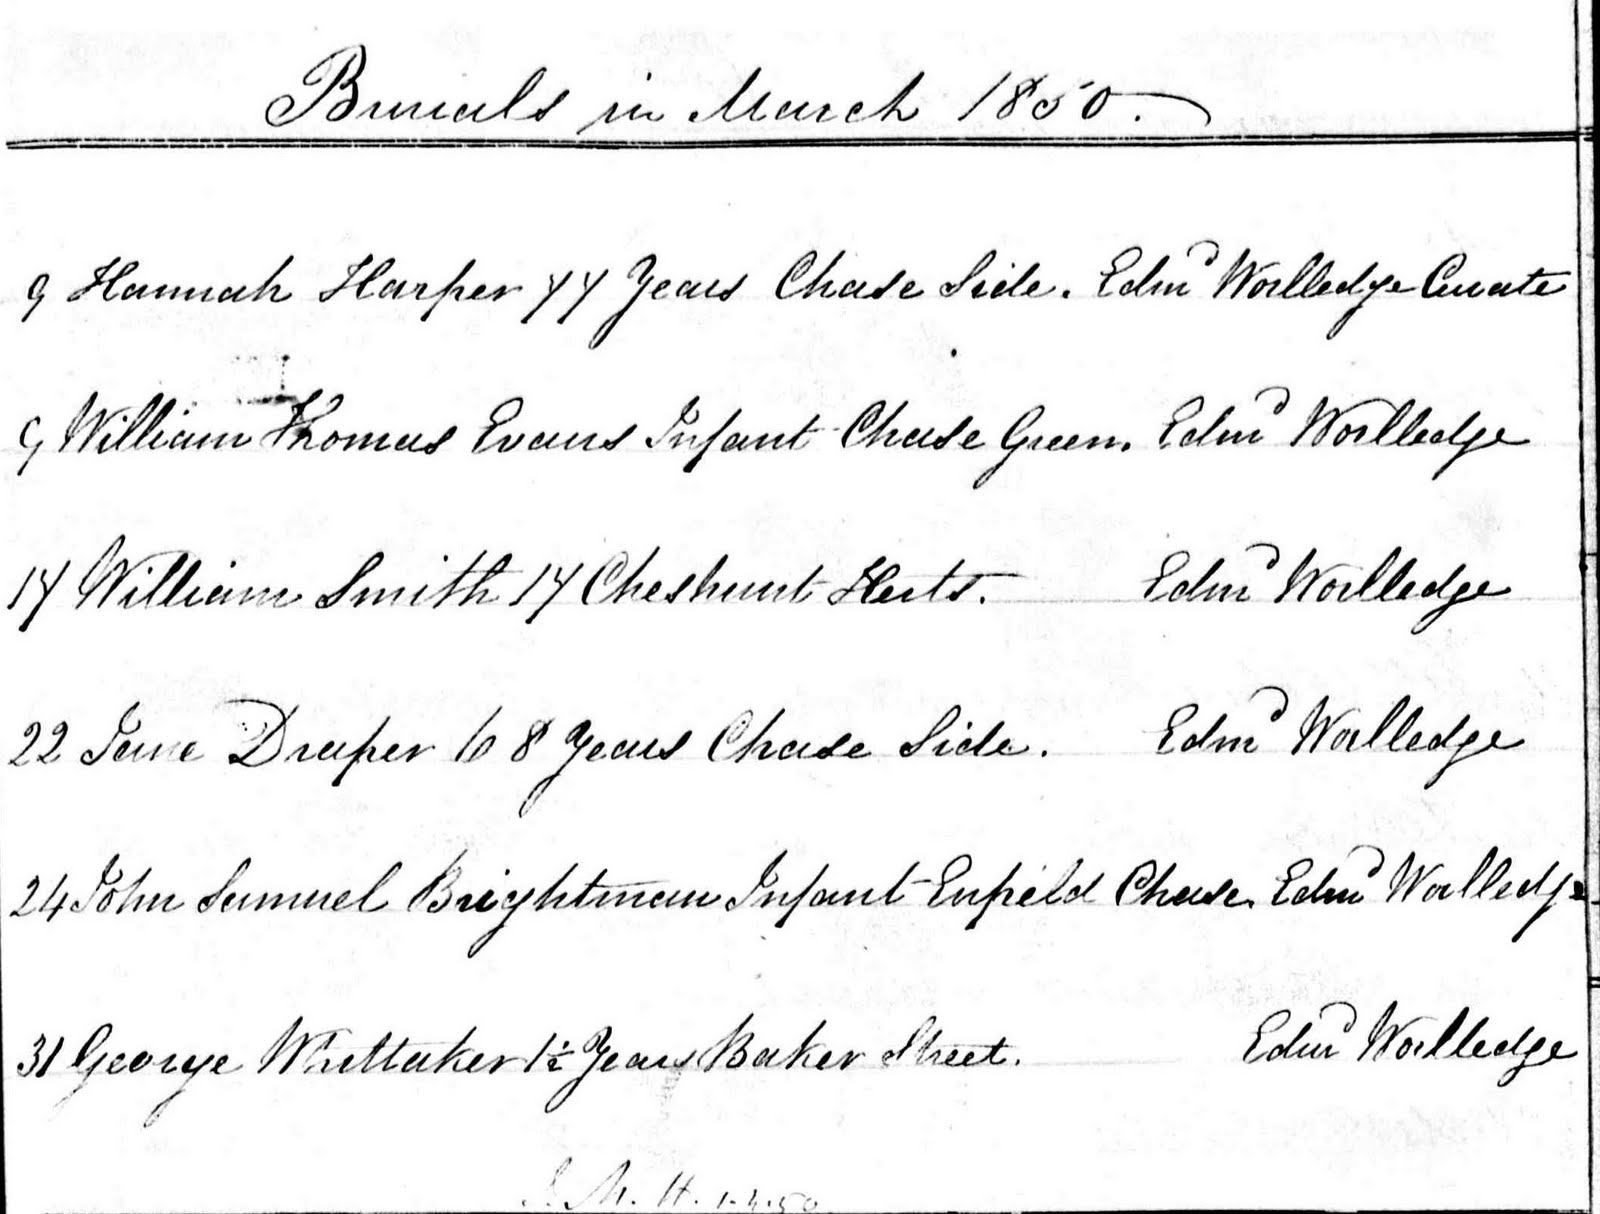 Burials in March 1850.
9 Hannah Harper 77 Years Chase Side. Edmd Worlledge Curate
9 William Thomas Evans Infant Chase Green. Edmd Worlledge
17 William Smith 17 Cheshunt Herts. Edmd Worlledge
22 Jane Draper 68 Years Chase Side. Edmd Worlledge
24 John Samuel Brightman Infant Enfield Chase. Edmd Worlledge
31 George Whittaker 1½ Years Baker Street. Edmd Worlledge
M. H. 1.4.50